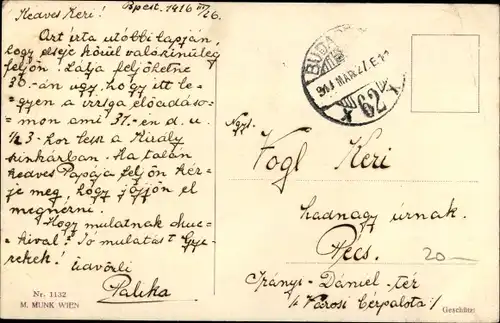 Bpest. 1916 III/26.
Kedves Keri!
Azt írta utóbbi lapján,
hogy elseje körül valószinüleg
feljön. Látja feljöhetne
30.-án ugy, hogy itt le-
gyen a vizsga előadáso-
mon ami 31.-én d. u.
1/2 3-kor lesz a Király
szinházban. Ha talán
kedves Papája feljön kér-
je meg, hogy jöjjön el
megnézni.
Hogy mulatnak
kival? Jó mulatást Gye-
rekek!
üdvözli
Palika
Nr. 1132
M. MUNK WIEN
BUDAPEST
916 MAR 27
62
Ngys.
Vogl Keri
hadnagy úrnak.
Pécs.
20-
Irányi-Dániel-tér
/: Városi bérpalota :/
Geschützt